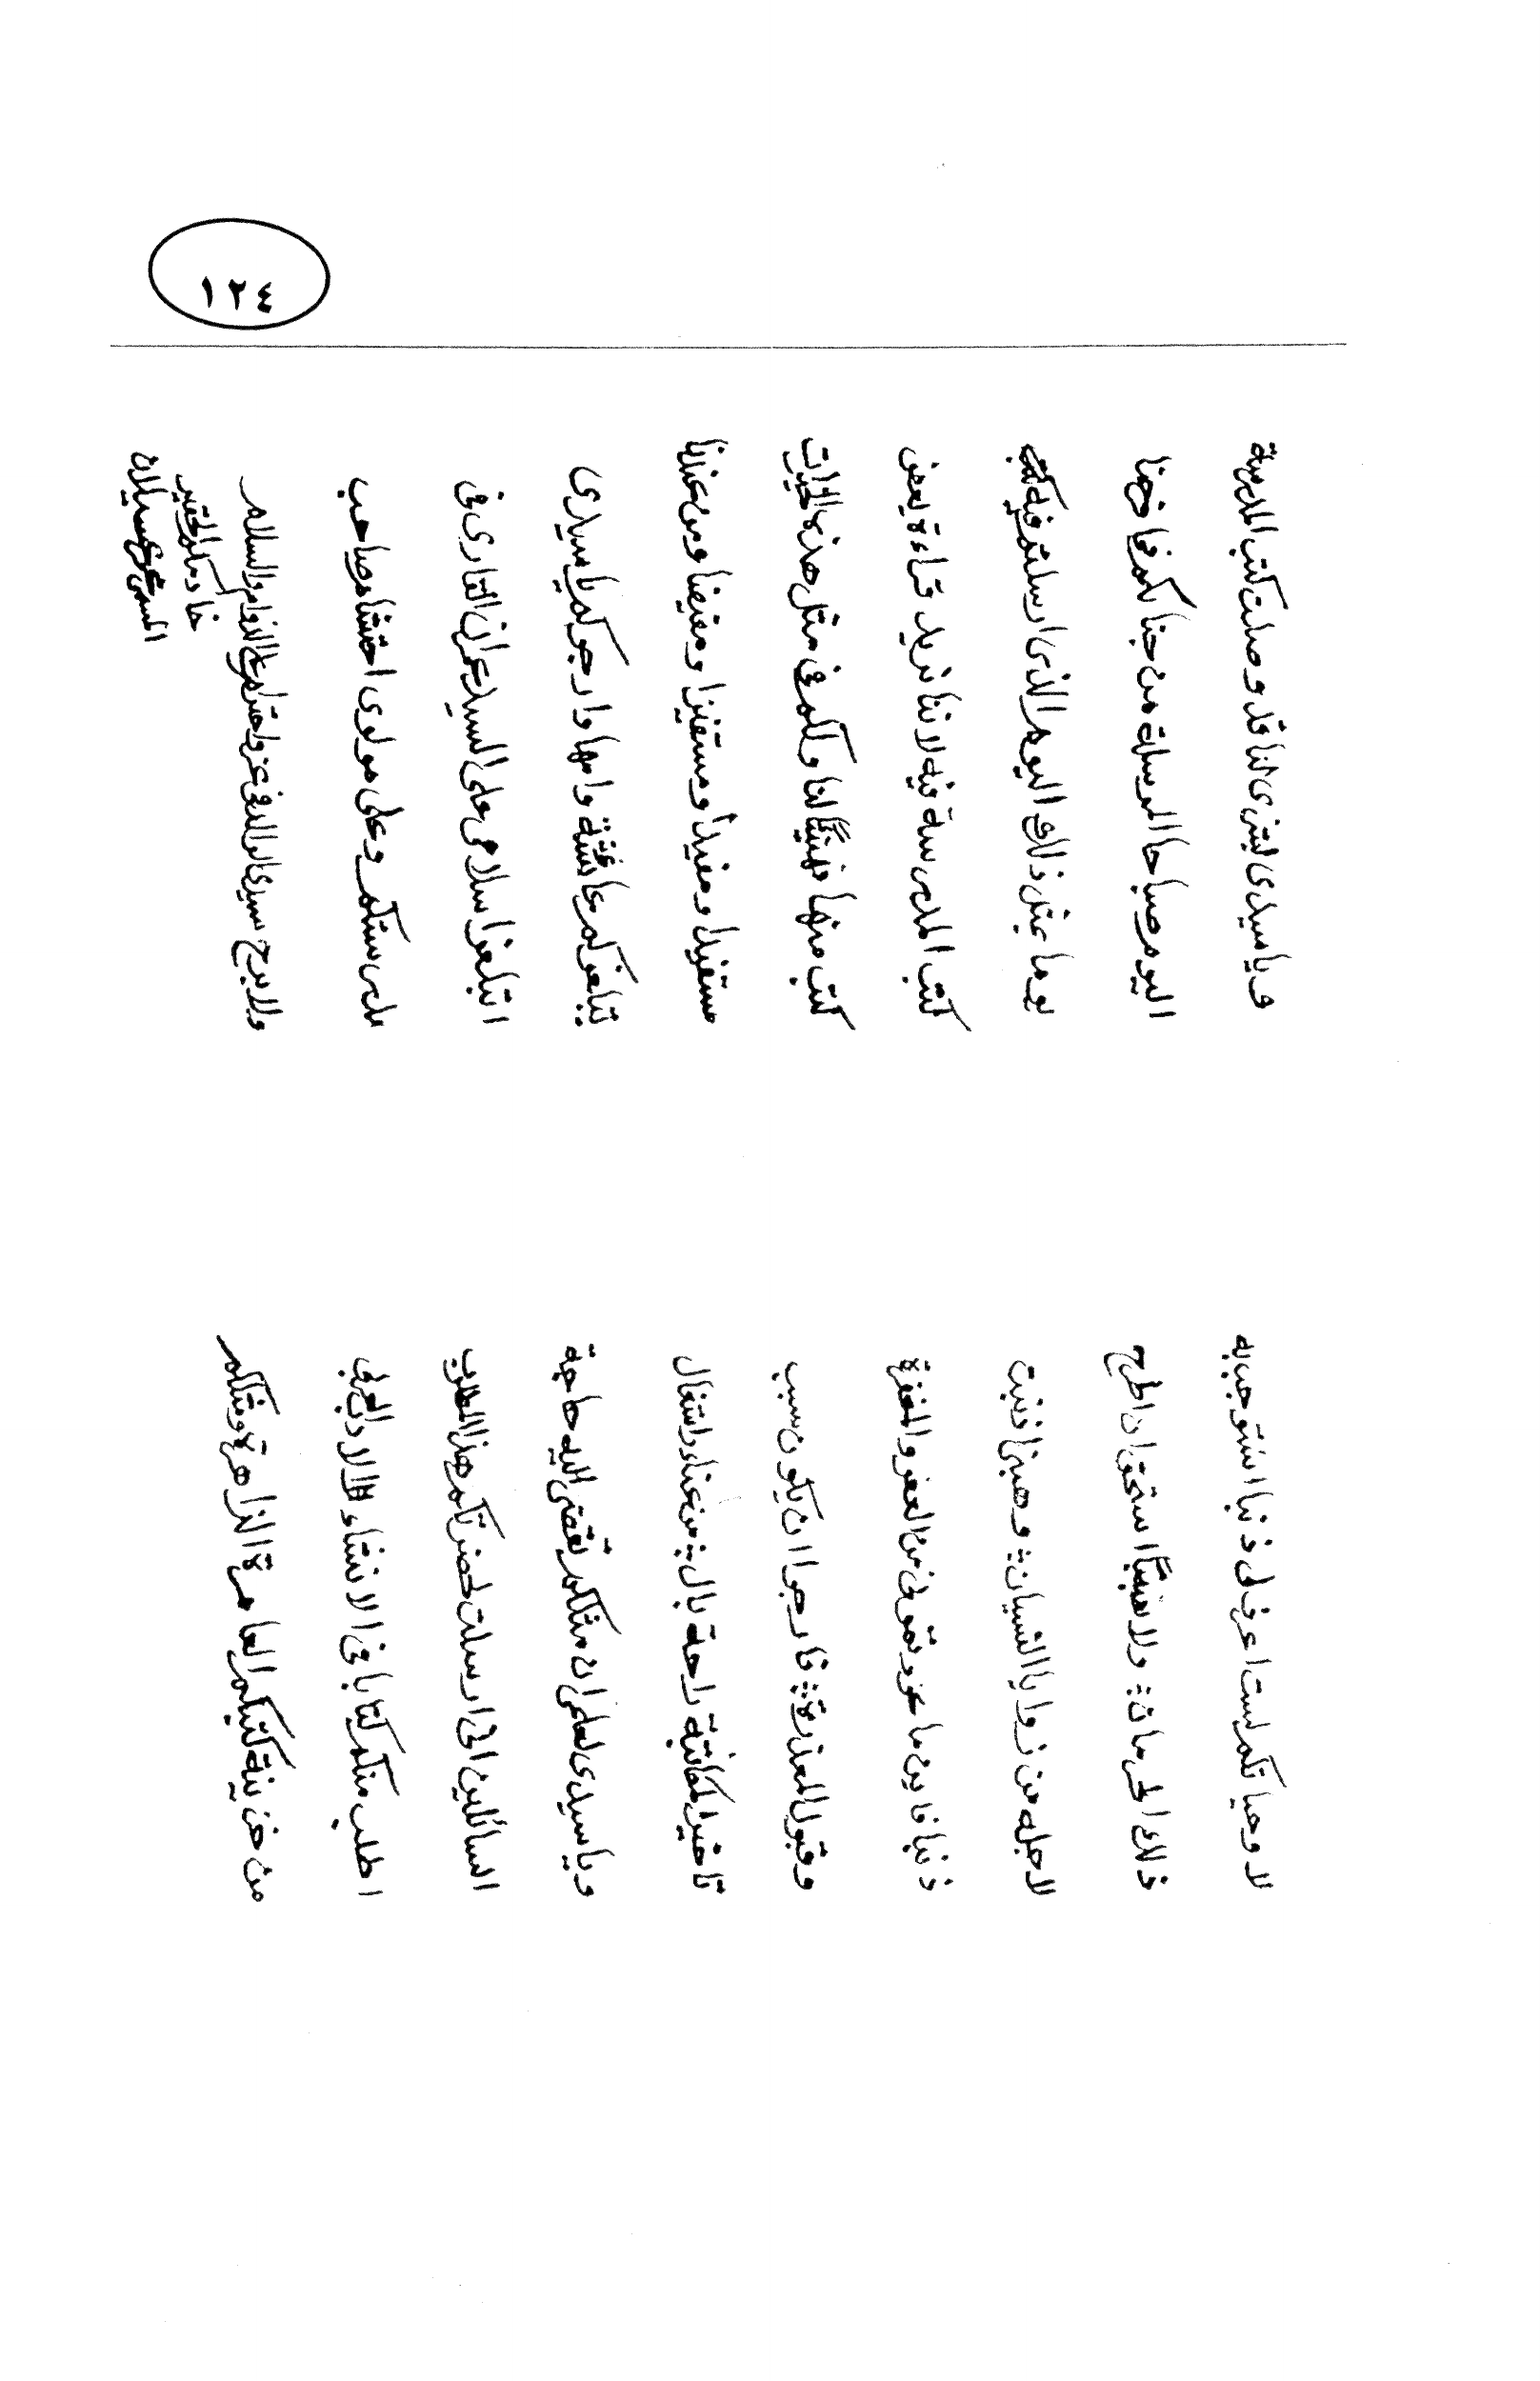 ١٢٤
لا وحياتكم لست اعرف لى ذنبا استوجب به
ذلك الحرمان ؛ ولا هيبًا استحق ان اطرح
لاجله من زوايا النسيان ؛ وهبنى اذنبت
ذنبا فاين ما عودتمونى من العفو والمغفرة
وقبول المعذرة ؛ فارجو ان يكون سبب
تاخير المكاتبة راحة بال ؛ من غناء واشتغال
ويا سيدى لعلمى ان مثلكم تقضى اليه حاجة
السائلين انى ارسلت لحضرتكم هذا المطلوب
اطلب منكم كتابا فى الانشاء والادب العربى
من خزينة كتبكم العامرة الزاهرة ومثلكم
ويا سيدى ليتزى لنا قد وصلت كتب المدرسة
اليوم صباحا المرسلة من جنابكم فما فرحنا
يوما مثل ذلك اليوم الذى ارسلتم فيه كتب
كتب المدرسة فيه لاننا نريد قراءة بعض
كتب منها فهنيئًا لنا ولكم فى مثل هذه الخيرات
مستفيدا ومفيدا ومستفيزا ومفيضا ومن عندنا
تبلغكم عائشة وامها وارجوكم يا سيدى
اتبلغوا سلامى على السيد عمران القارى فى
مدرستكم وعلى مولوى احتشام صاحب
ولا برح سيدى الوالد فى عز واحترام على الدوام والسلام
خادمكم الحقير